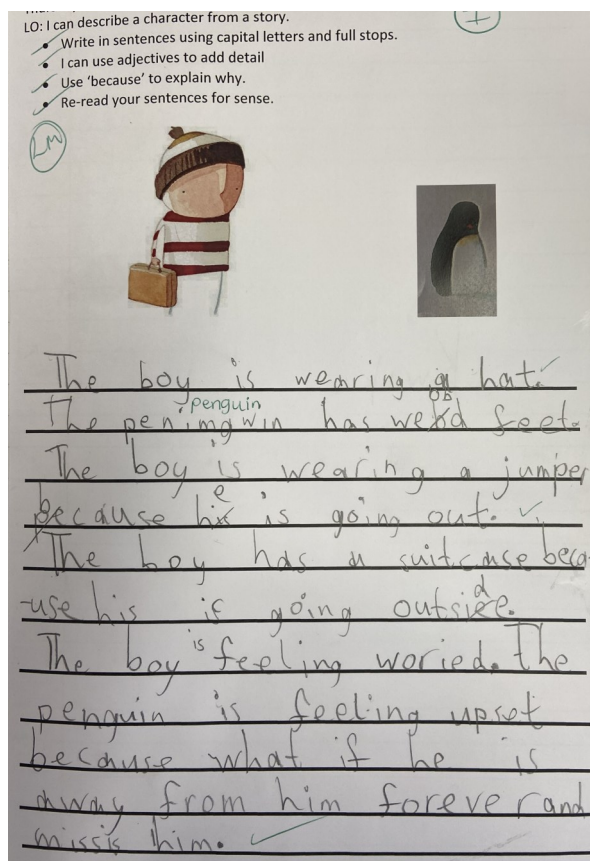 LO: I can describe a character from a story.
Write in sentences using capital letters and full stops.
I can use adjectives to add detail
Use ‘because’ to explain why.
Re-read your sentences for sense.
LM
The boy is wearing a hat.
penguin
The has feet.
The boy is wearing a jumper
because he is going out.
The boy has a suitcase beca-
-use his is going outside.
The boy is feeling woried. The
penguin is feeling upset
because what if he is
away from him forever and
missis him.